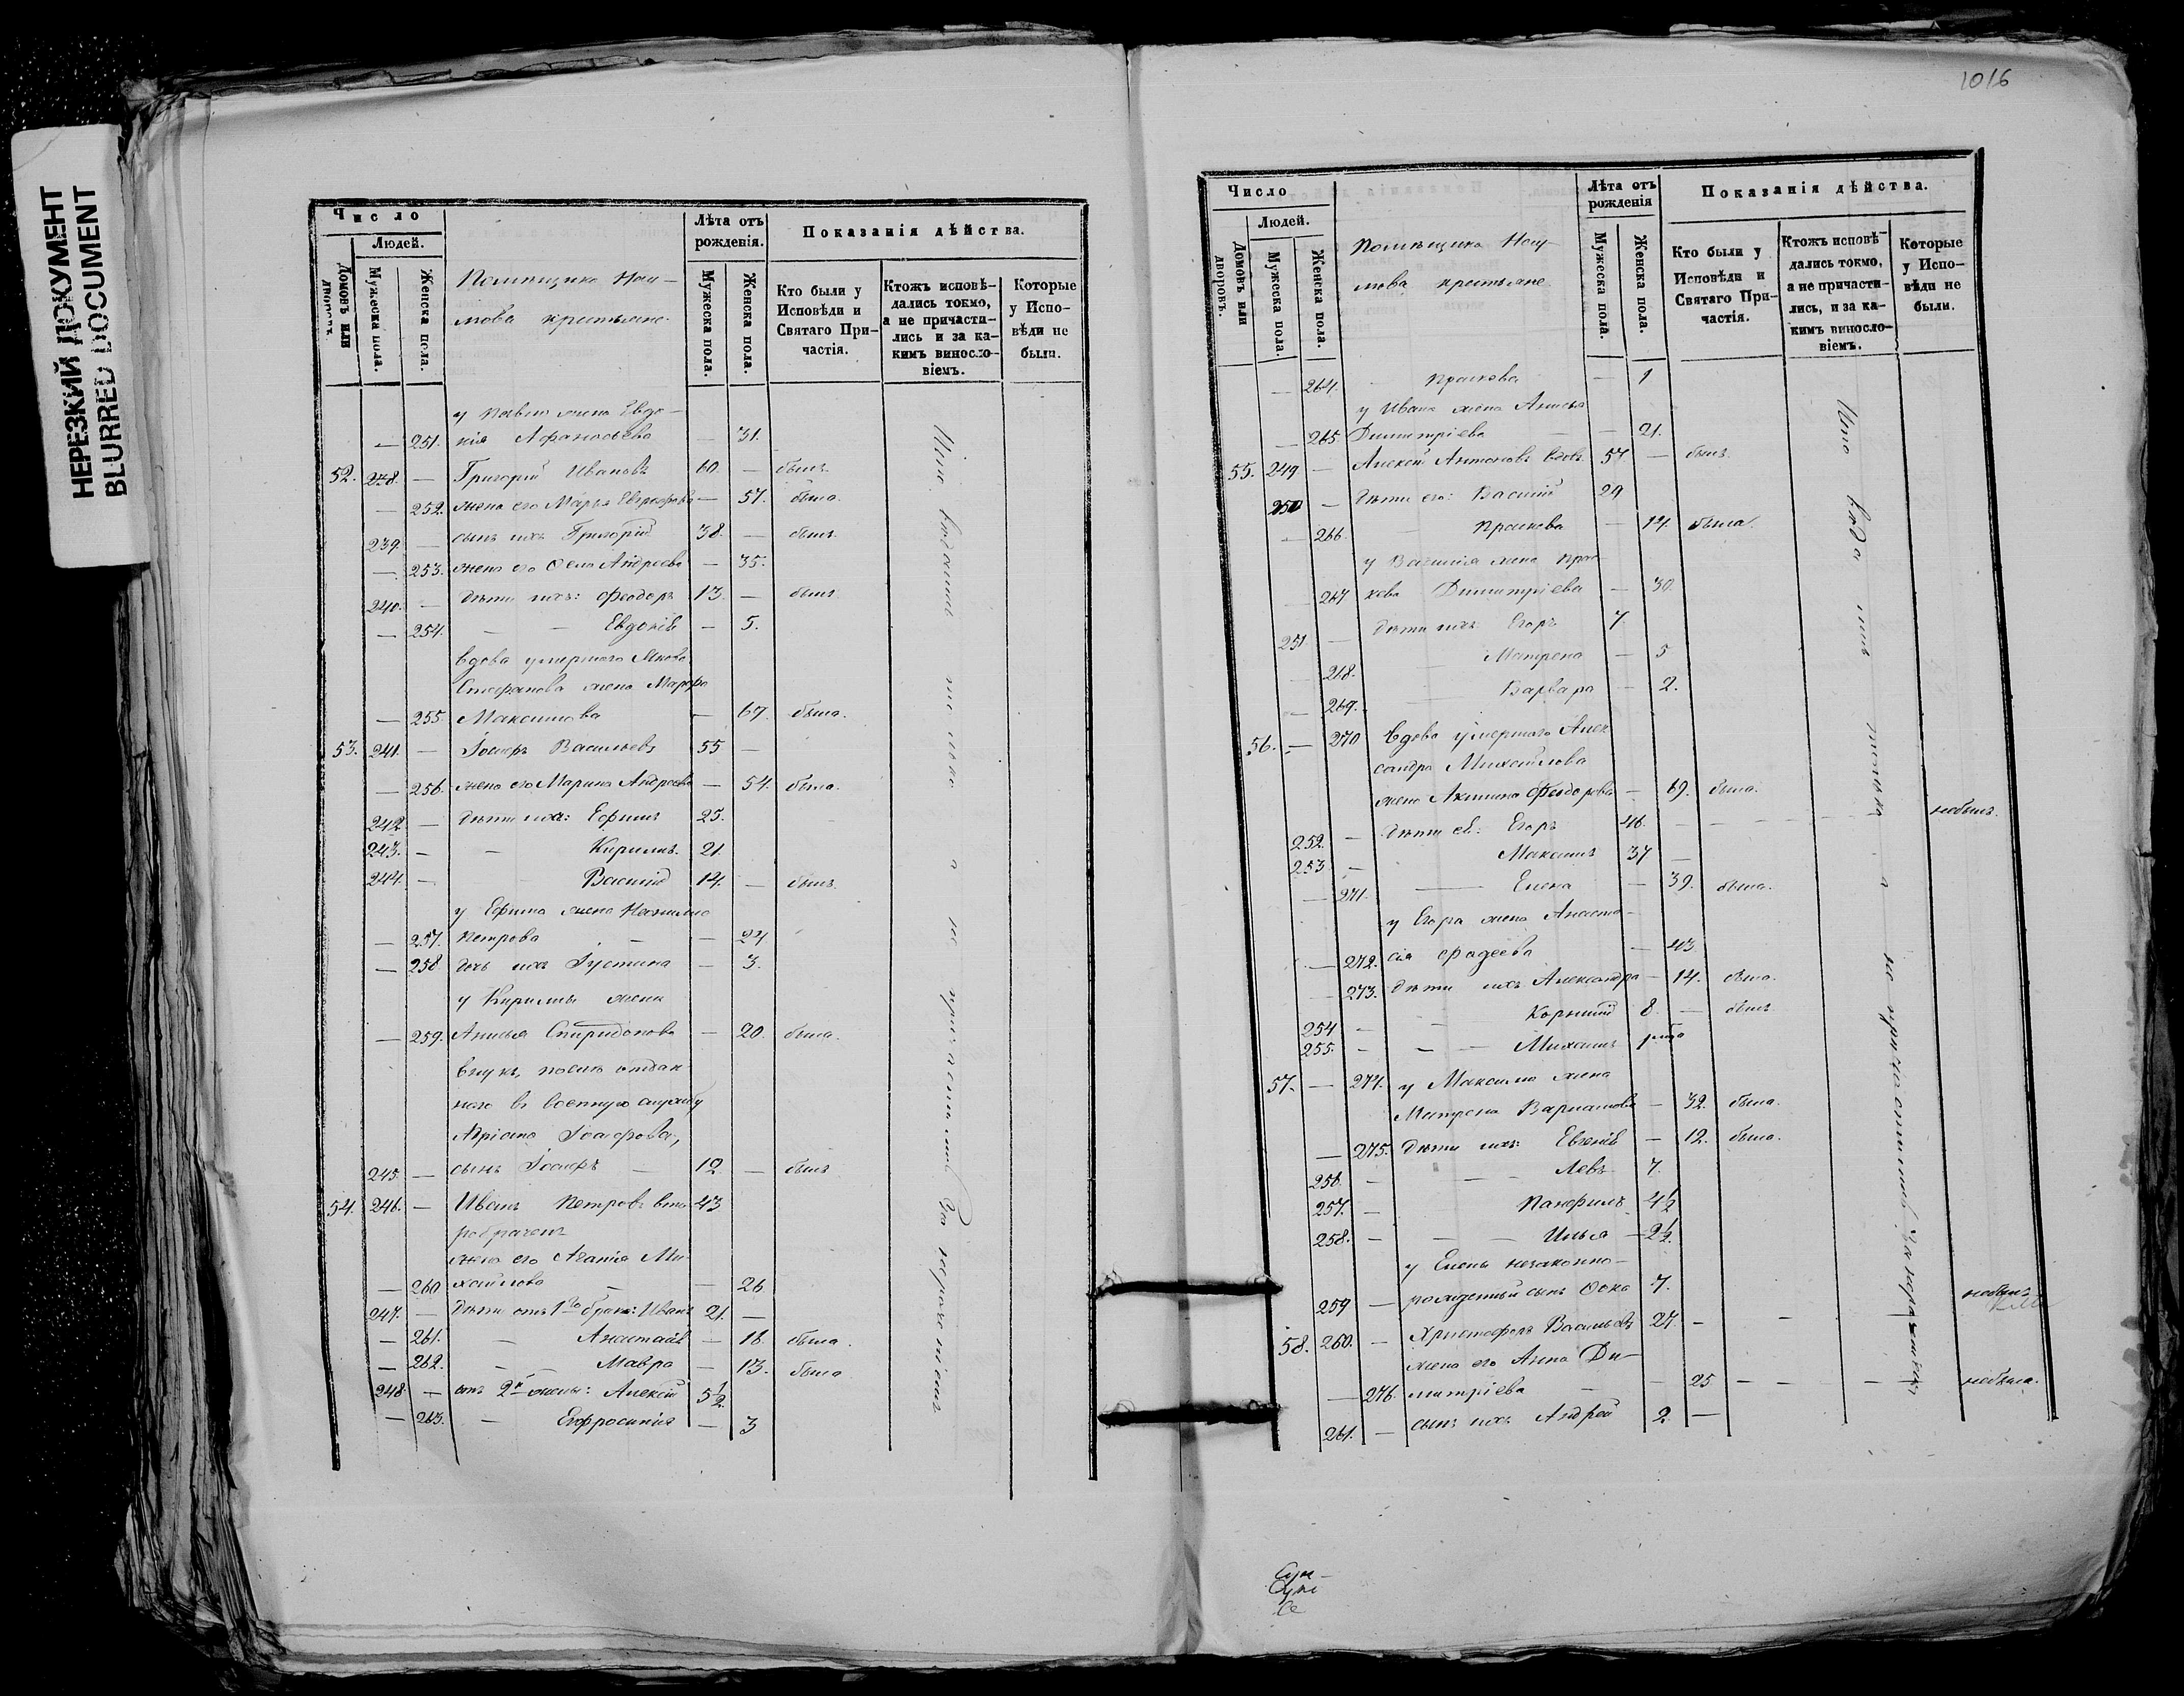 НЕРЕЗКИЙ ДОКУМЕНТ
BLURRED DOCUMENT
Число
Людей.
Домовъ или дворовъ.
Мужеска пола.
Женска пола.
Помѣщика
крестьяне.
Лѣта отъ рожденія.
Мужеска пола.
Женска пола.
Показанія дѣйства.
Кто были у Исповѣди и Святаго При-частія.
Ктожъ исповѣ-дались токмо, а не причасти-лись и за ка-кимъ винословіемъ.
Которые у Испо-вѣди не были.
у Павла жена Евдо-
— 251. кія Афанасьева — 31.
52. 238. — Григорій Ивановъ 60. — былъ
— 252. жена его Марья — 57. была.
239. — сынъ ихъ Григорій 38. — былъ
— 253. жена его Андреева — 35.
240. — дѣти ихъ: Феодоръ 13. — былъ
— 254. — — Евдокія — 5.
вдова умершаго Якова
Стефанова жена Марфа
— 255. Максимова — 67. была.
53. 241. — Іосифъ Васильевъ 55 —
— 256. жена его Марина Андреева — 54. была.
242. — дѣти ихъ: Ефимъ 25.
243. — — Кирилъ. 21.
244. — — Василій 14. — былъ
у Ефима жена Наталья
— 257. Петрова — — 24
— 258 дочь ихъ Іустина — 3.
у Кириллы жена
— 259. Анисья Спиридонова — 20. была.
внукъ, послѣ отдан-
наго въ военную службу
Іосифова,
245. — сынъ Іосифъ — 12 — былъ
54. 246. — Иванъ Петровъ вто- 43
робрачен
жена его Агапія Ми-
— 260 хайлова — — 26
247. — дѣти отъ 1го брака: Иванъ 21. —
— 261. — Анастасія — 16. была.
— 262. — — Мавра — 13. была
248. — отъ 2й жены: Алексѣй 5½
— 263. — Евфросинія — 3
1016
Число
Людей.
Домовъ или дворовъ.
Мужеска пола.
Женска пола.
Помѣщика
крестьяне
Лѣта отъ рожденія
Мужеска пола.
Женска пола.
Показанія дѣйства.
Кто были у Исповѣди и Святаго При-частія.
Ктожъ исповѣ-дались токмо, а не причасти-лись, и за ка-кимъ винословіемъ.
Которые у Испо-вѣди не были.
— 264. Праскева — 1
у Ивана жена Анисья
— 265 Димитріева — — 21.
55. 249 — Алексѣй Антоновъ вдовъ 57. — былъ.
250 — дѣти его: Василій 29
— 266. Праскева — 14. была.
у Василія жена Прас-
267 кева Димитріева — 30.
251 — дѣти ихъ: Егоръ 7
268. — Матрена — 5
— 269. — Варвара — 2.
56. — 270 вдова умершаго Алек-
сандра Михайлова
жена Акилина Феодорова — 69. была.
252. — дѣти ея: Егоръ 46. — — — небылъ.
253 — Максимъ 37 —
— 271. — Елена — 39. была.
у Егора жена Анаста-
— 272. сія Фадеева — 43
— 273. дѣти ихъ Александра — 14. была.
254 — — Корнилій 8. — былъ
255. — — — Михаилъ
57. — 274. у Максима жена
Матрена — 32. была.
— 275. дѣти ихъ: Евгенія — 12. была.
256 — — Левъ 7.
257. — — Панфилъ 4½
258. — — Илья — 2½
у Елены незаконно-
259 — рожденный сынъ Фока 7.
58. 260. — Христофоръ Васильевъ 27. — — — небылъ
жена его Анна Ди-
— 276. митріева — — 25 — — — небыла.
261. — сынъ ихъ Андрей 2. —